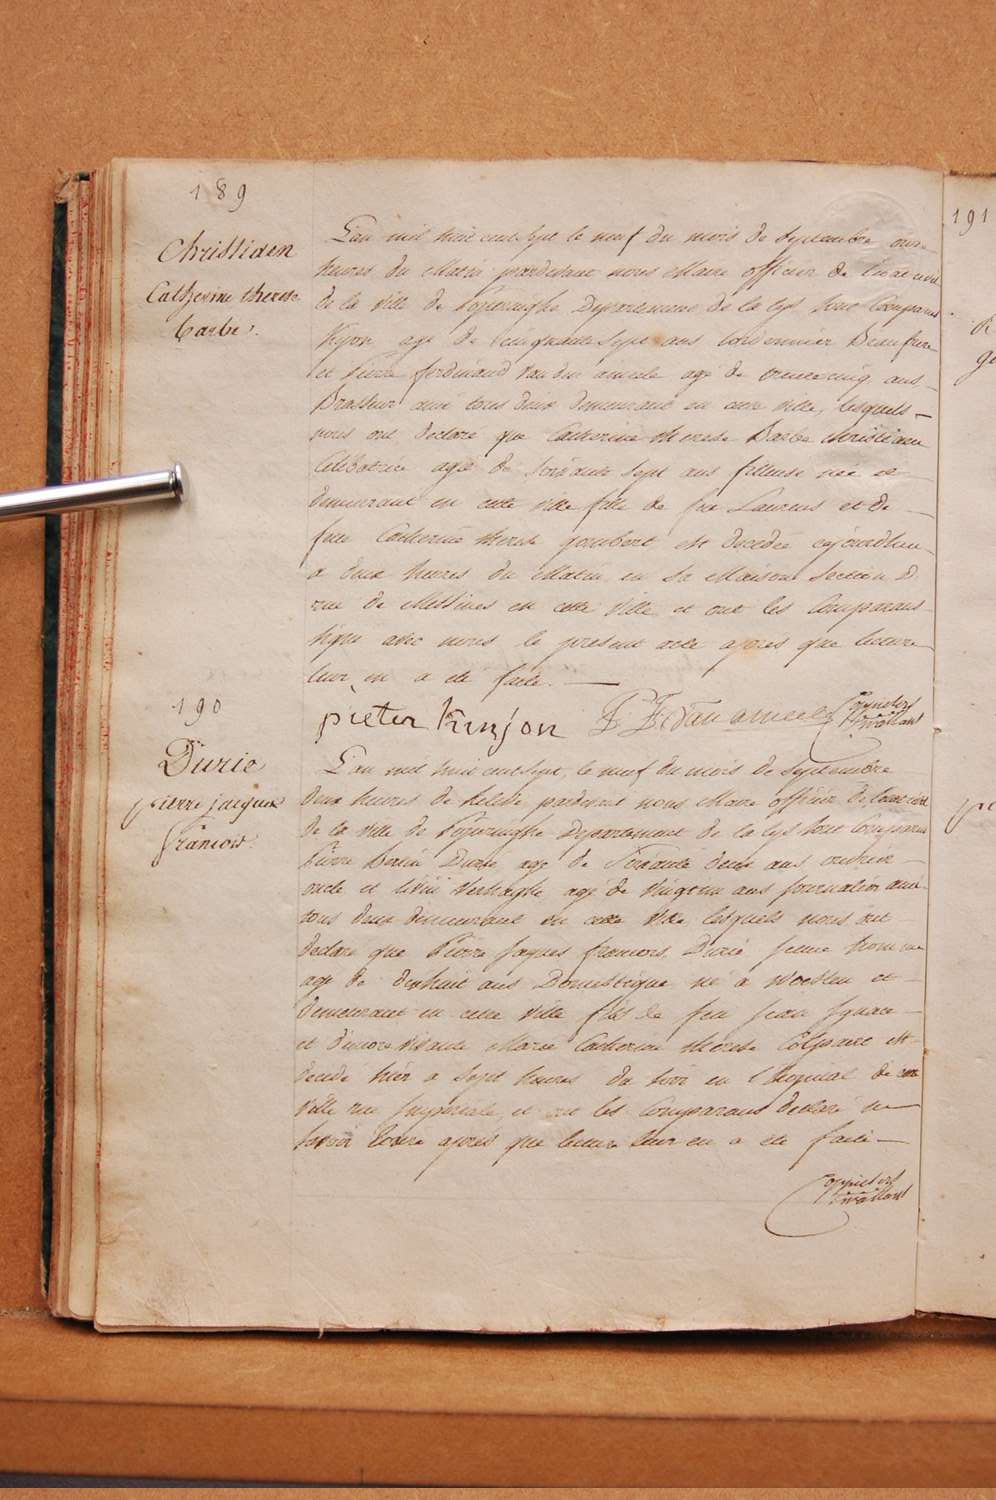 189
Christiaen
Catherine therese
barbe.
L'an mil huit cent sept le neuf du mois de Septembre onze
heures du Matin pardevant nous Maire officier de l'etat civil
de la ville de Poperinghe Departement de la Lys sont Comparus
agé de cinquante sept ans cordonnier Beaufrere
et Pierre ferdinand Van den ameele agé de trente cinq ans
Brasseur ami tous deux demeurant en cette ville, lesquels
nous ont declaré que Catherine therese Barbe christiaen
Celibatrice agée de soixante sept ans fileuse née et
demeurant en cette ville fille de feu Laurens et de
feue Catherine therese joubert est decedée cejourdhui
a deux heures du Matin en sa Maison Section D
rue de Messines en cette ville et ont les Comparans
signé avec nous le present acte apres que lecture
leur en a eté faite.
pieter Kinjon P F Van ameele
190
Durie
pierre jacques
francois.
L'an mil huit cent sept, le neuf du mois de Septembre
deux heures de pardevant nous Maire officier de l'etat civil
de la ville de Poperinghe Departement de la Lys sont Comparus
Pierre Durie agé de soixante deux ans ouvrier
oncle et Verhaeghe agé de vingt un ans journalier ami
tous deux demeurant en cette ville, lesquels nous ont
declaré que Pierre Jaques francois Durie jeune homme
agé de dixhuit ans Domestique né a Woesten et
demeurant en cette ville fils de feu jean Ignace
et d'encore vivante Marie Catherine thérése est
decedé hier a sept heures du soir en l'hopital de cette
ville rue Imperiale, et ont les Comparans declaré ne
savoir ecrire aprés que lecture leur en a eté faite
191